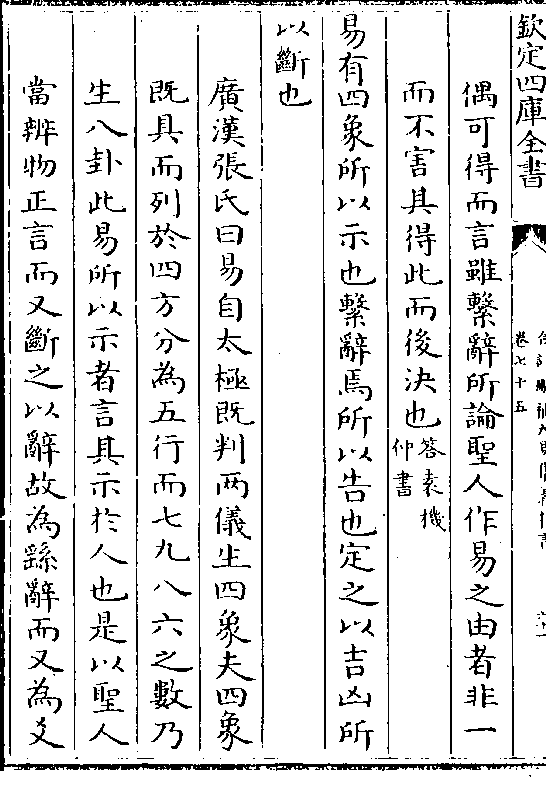 欽定四庫全書
卷七十五
偶可得而言雖繫辭所論聖人作易之由者非一
而不害其得此而後決也答袁機仲書
易有四象所以示也繫辭焉所以告也定之以吉凶所
以斷也
廣漢張氏曰易自太極既判兩儀生四象夫四象
既具而列於四方分為五行而七九八六之數乃
生八卦此易所以示者言其示於人也是以聖人
當辨物正言而又斷之以辭故為繇辭而又為爻